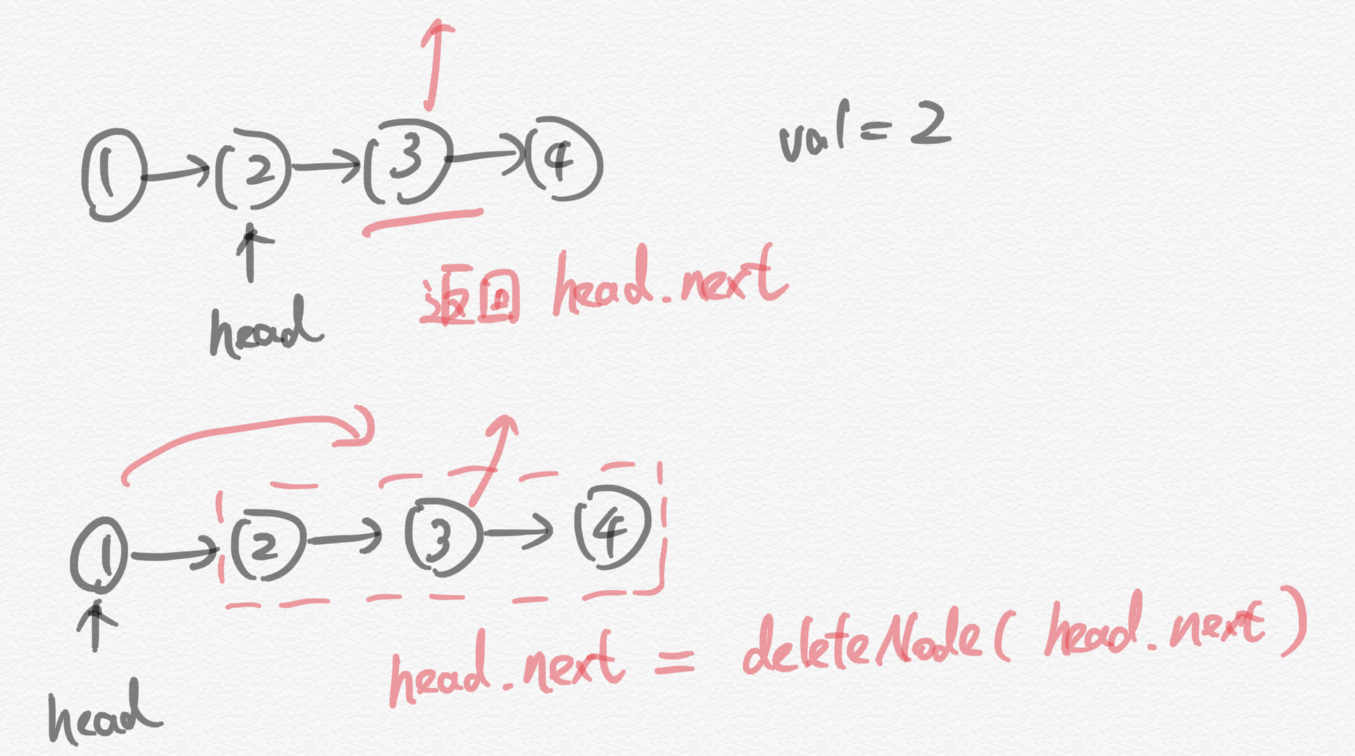 1 2 3 4
val = 2
返回 head.next
head
1 2 3 4
head.next = deleteNode( head.next )
head